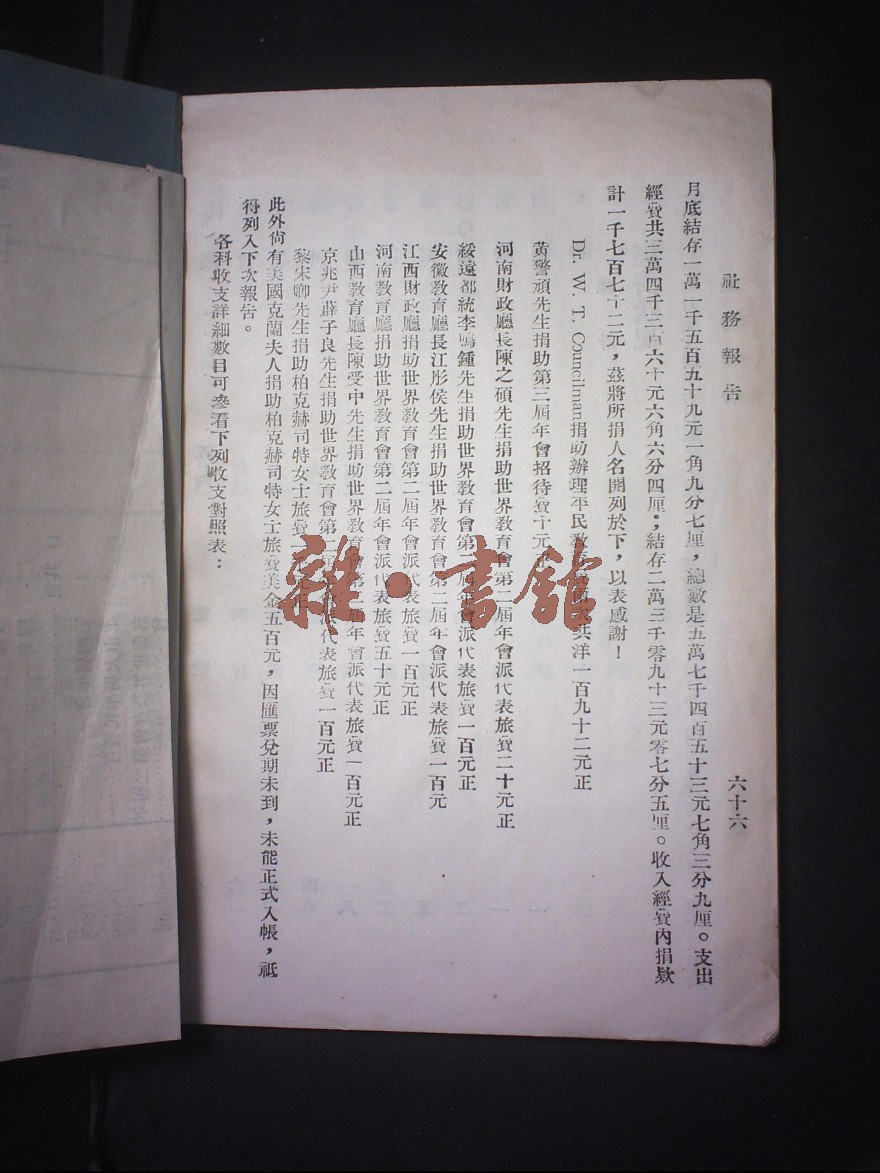 社務報告
六十六
月底結存一萬一千五百五十九元一角九分七厘，總數是五萬七千四百五十三元七角三分九厘。支出
經費共三萬四千三百六十元六角六分四厘；結存二萬三千零九十三元零七分五厘。收入經費內捐款
計一千七百七十二元，茲將所捐人名開列於下，以表感謝！
Dr. W. T. Councilman捐助辦理平民教育共洋一百九十二元正
黃警頑先生捐助第三屆年會招待費十元正
河南財政廳長陳之碩先生捐助世界教育會第二屆年會派代表旅費二十元正
綏遠都統李鳴鍾先生捐助世界教育會第二屆年會派代表旅費一百元正
安徽教育廳長江彤侯先生捐助世界教育會第二屆年會派代表旅費一百元
江西財政廳捐助世界教育會第二屆年會派代表旅費一百元正
河南教育廳捐助世界教育會第二屆年會派代表旅費五十元正
山西教育廳長陳受中先生捐助世界教育會第二屆年會派代表旅費一百元正
京兆尹薛子良先生捐助世界教育會第二屆年會派代表旅費一百元正
黎宋卿先生捐助柏克赫司特女士旅費元正
此外尙有美國克蘭夫人捐助柏克赫司特女士旅費美金五百元，因匯票兌期未到，未能正式入帳，祇
得列入下次報告。
各科收支詳細數目可參看下列收支對照表：
雜·書館